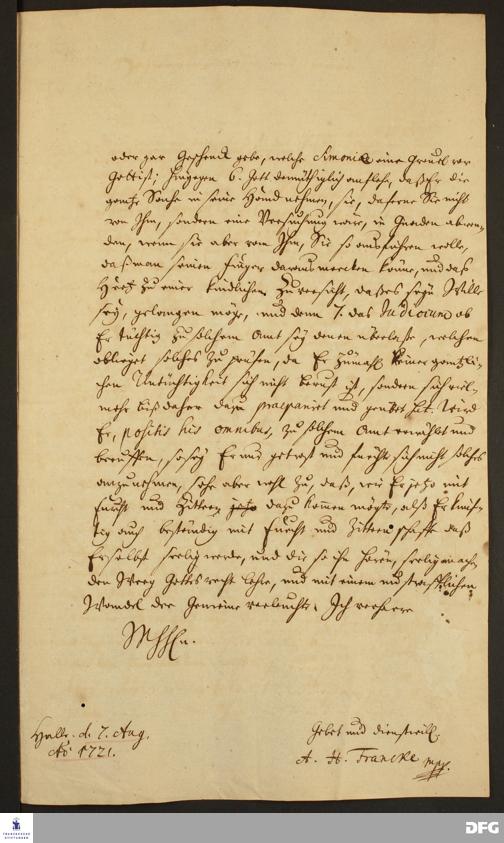 oder gar Geschenck gebe, welche Simonie eine Greuel vor
Gott ist; hingegen 6. Gott demüthiglich anflehe, daß Er die
gantze Sache in seine Hände nehme, sie, daferne Sie nicht
von Ihm, sondern eine Versuchung wäre, in Gnaden abwen-
den, wenn sie aber von Ihm, Sie so ausführen wolle,
daß man seinen Finger daraus mercken könne, und das
Hertz zu einer kindlichen Zuversicht, daß es sein Wille
sey, gelangen möge, und denn 7. das Judicium ob
Er tüchtig zu solchem Amt sey denen überlaße, welchen
oblieget solches zu prüfen, da Er zumahl keiner gäntzli-
chen Untüchtigkeit sich nicht bewust ist, sondern sich viel-
mehr biß daher dazu praepariret und geübet hat. Wird
Er, positis his omnibus, zu solchem Amt erwählet und
beruffen, so sey Er nur getrost und fürchte sich nicht solches
anzunehmen, sehe aber wohl zu, daß, wie Er jetzo mit
Furcht und Zittern dazu kommen möchte, also Er künf-
tig auch beständig mit Furcht und Zittern schaffe daß
Er selbst seelig werde, und die so ihn hören, seelig mache,
den Weeg Gottes recht lehre, und mit einem unsträfflichen
Wandel der Gemeine vorleuchte. Ich verharre
Halle. d. 7. Aug.
Ao 1721.
Gebet und dienstwill.
A. H. Francke mpp.
FRANCKESCHE STIFTUNGEN
DFG